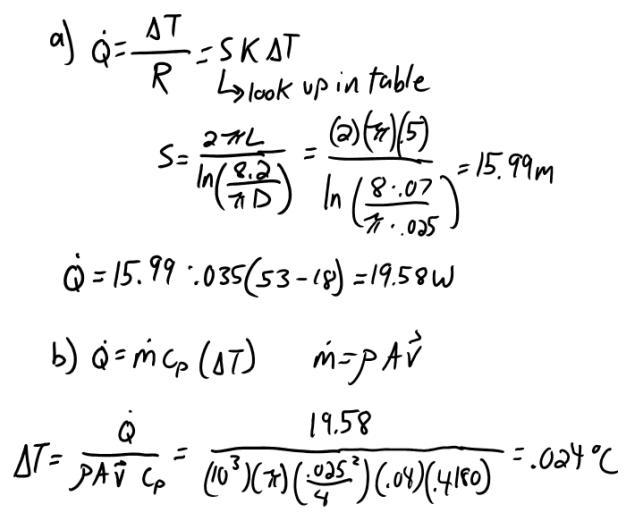 a) Q̇ = ΔT / R = S K ΔT
↳ look up in table
S = 2πL / ln(8.2 / πD) = (2)(π)(5) / ln(8·.07 / π·.025) = 15.99m
Q̇ = 15.99 ·.035(53-18) = 19.58W
b) Q̇ = ṁ Cp (ΔT) ṁ = ρ A v⃗
ΔT = Q̇ / ρ A v⃗ Cp = 19.58 / (10³)(π)(.025² / 4)(.04)(4180) = .024 °C